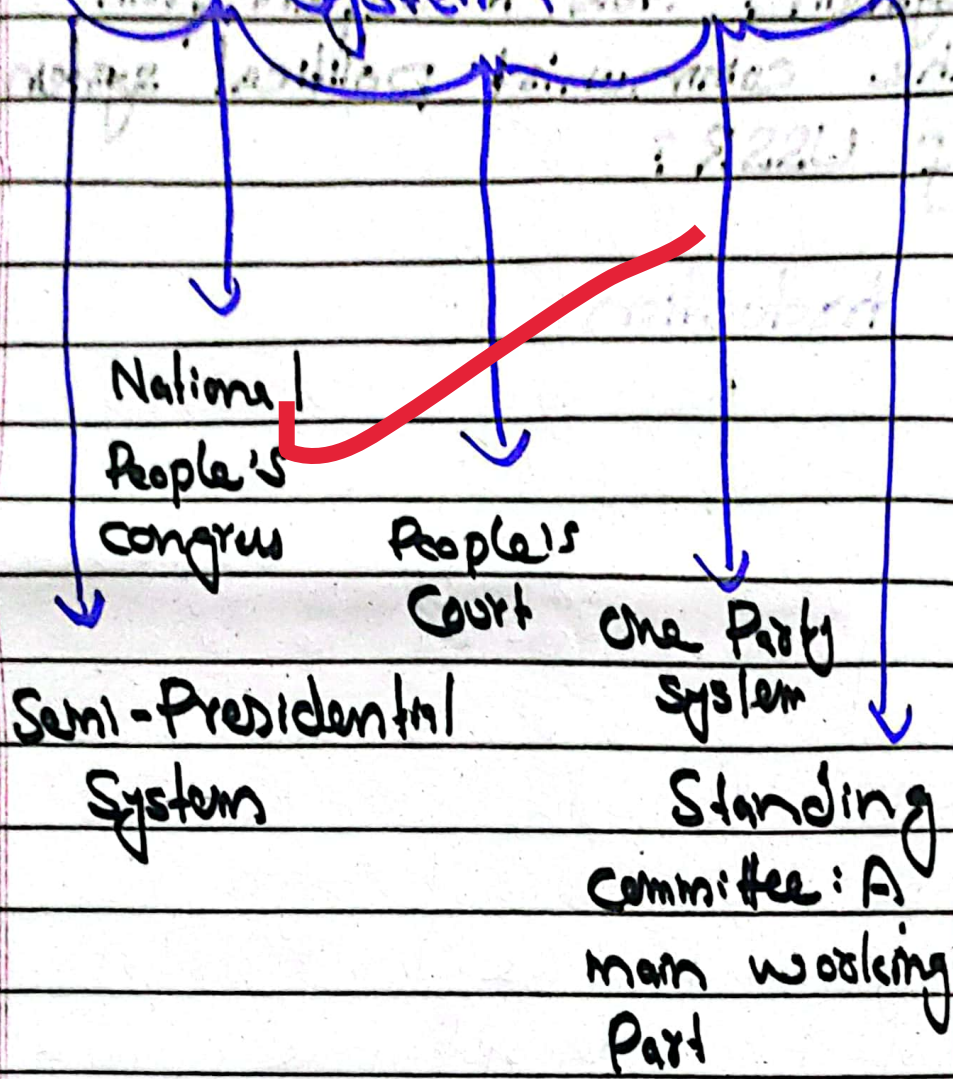 System
National
People's
congrus
People's
Court
One Party
system
Semi-Presidential
System
Standing
committee : A
main working
Part